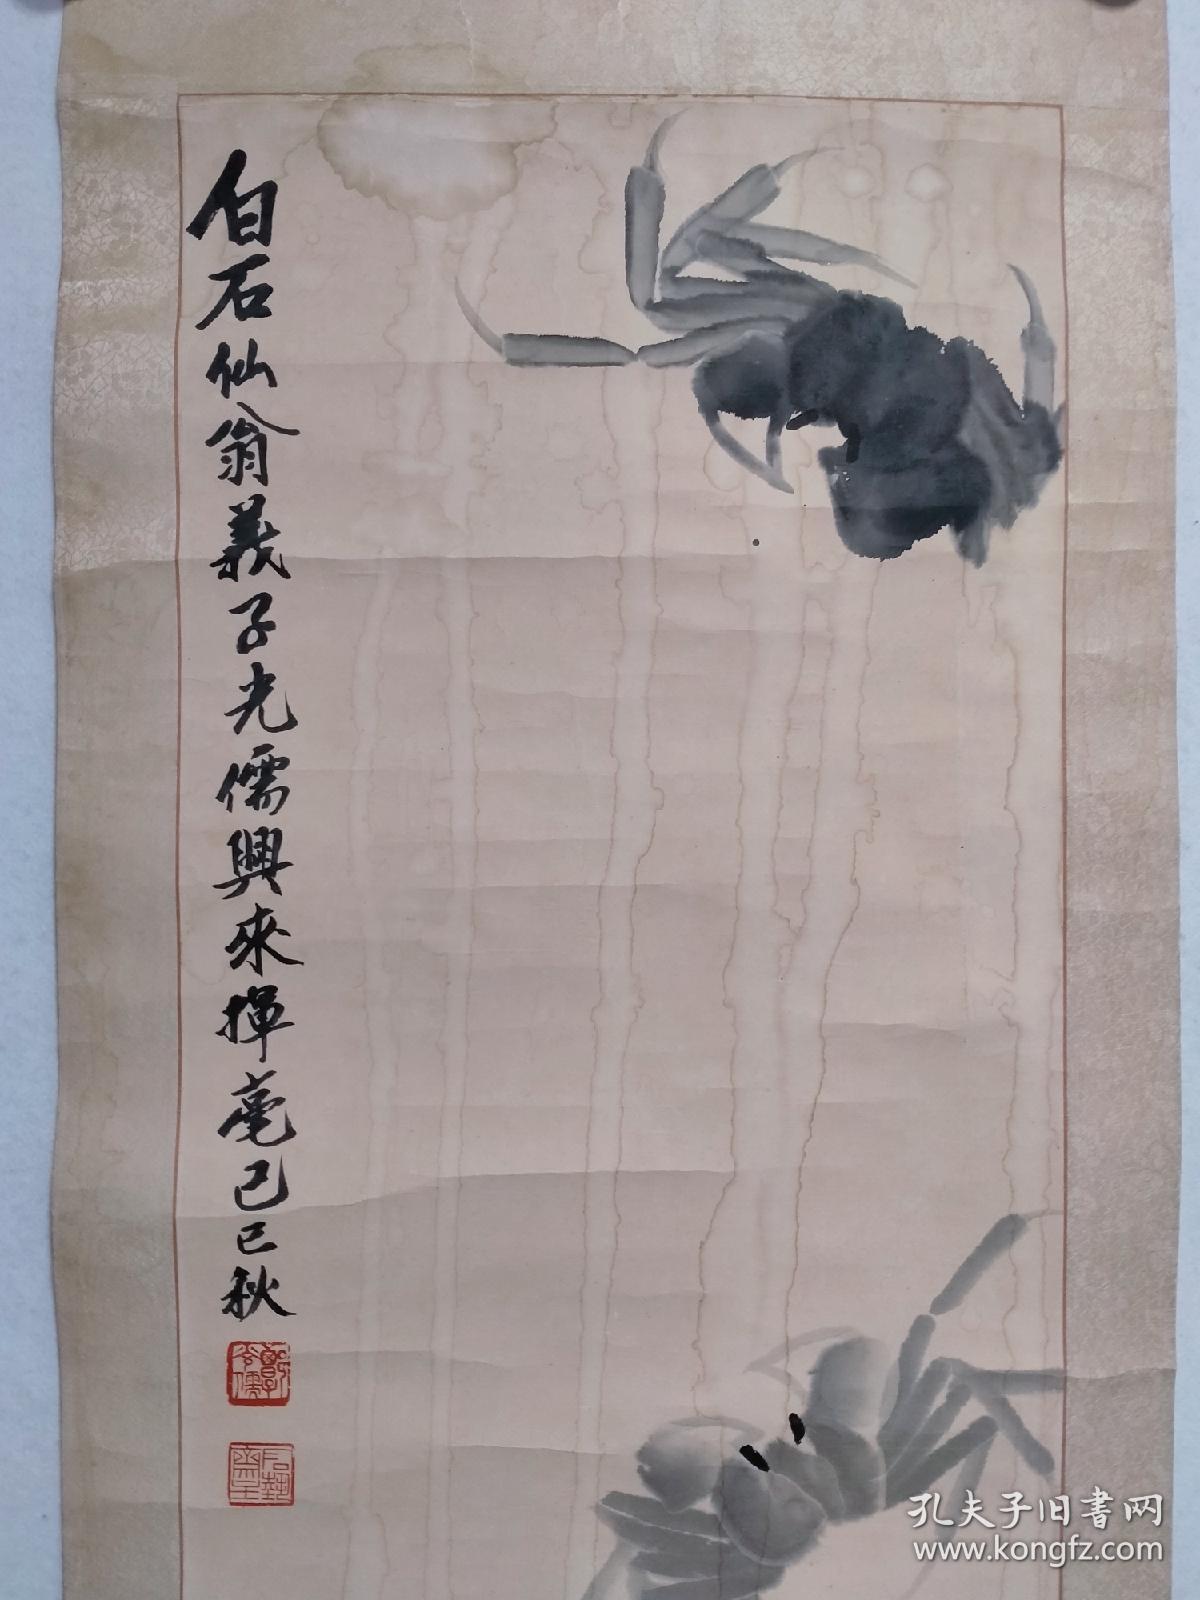 白石仙翁義子光儒興來揮毫己巳秋
孔夫子旧書网
www.kongfz.com